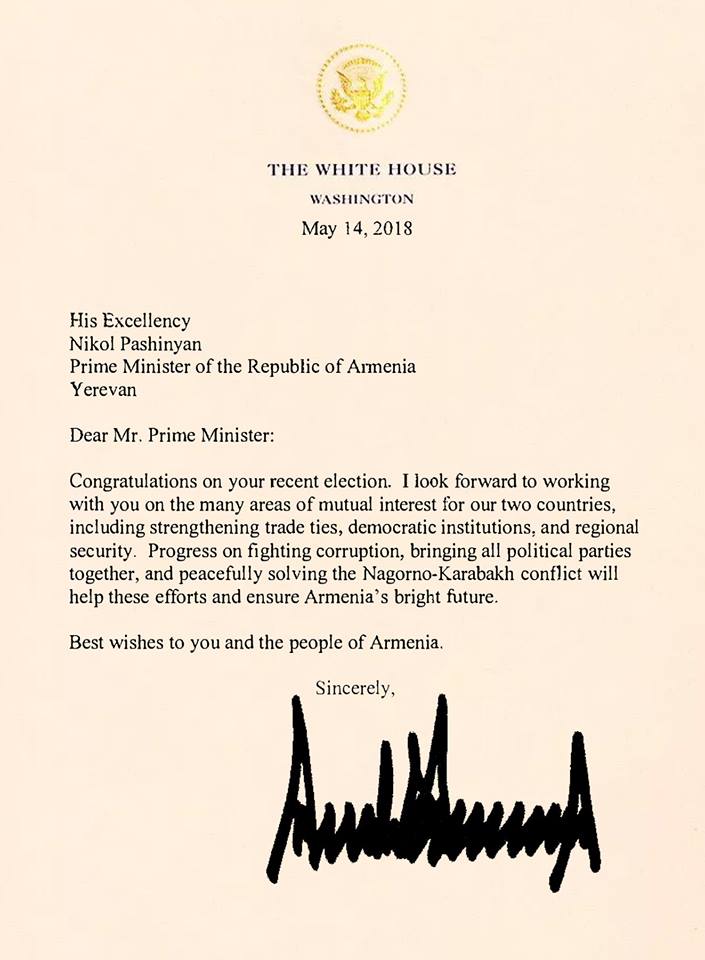 THE WHITE HOUSE
WASHINGTON
May 14, 2018
His Excellency
Nikol Pashinyan
Prime Minister of the Republic of Armenia
Yerevan
Dear Mr. Prime Minister:
Congratulations on your recent election. I look forward to working
with you on the many areas of mutual interest for our two countries,
including strengthening trade ties, democratic institutions, and regional
security. Progress on fighting corruption, bringing all political parties
together, and peacefully solving the Nagorno-Karabakh conflict will
help these efforts and ensure Armenia's bright future.
Best wishes to you and the people of Armenia.
Sincerely,